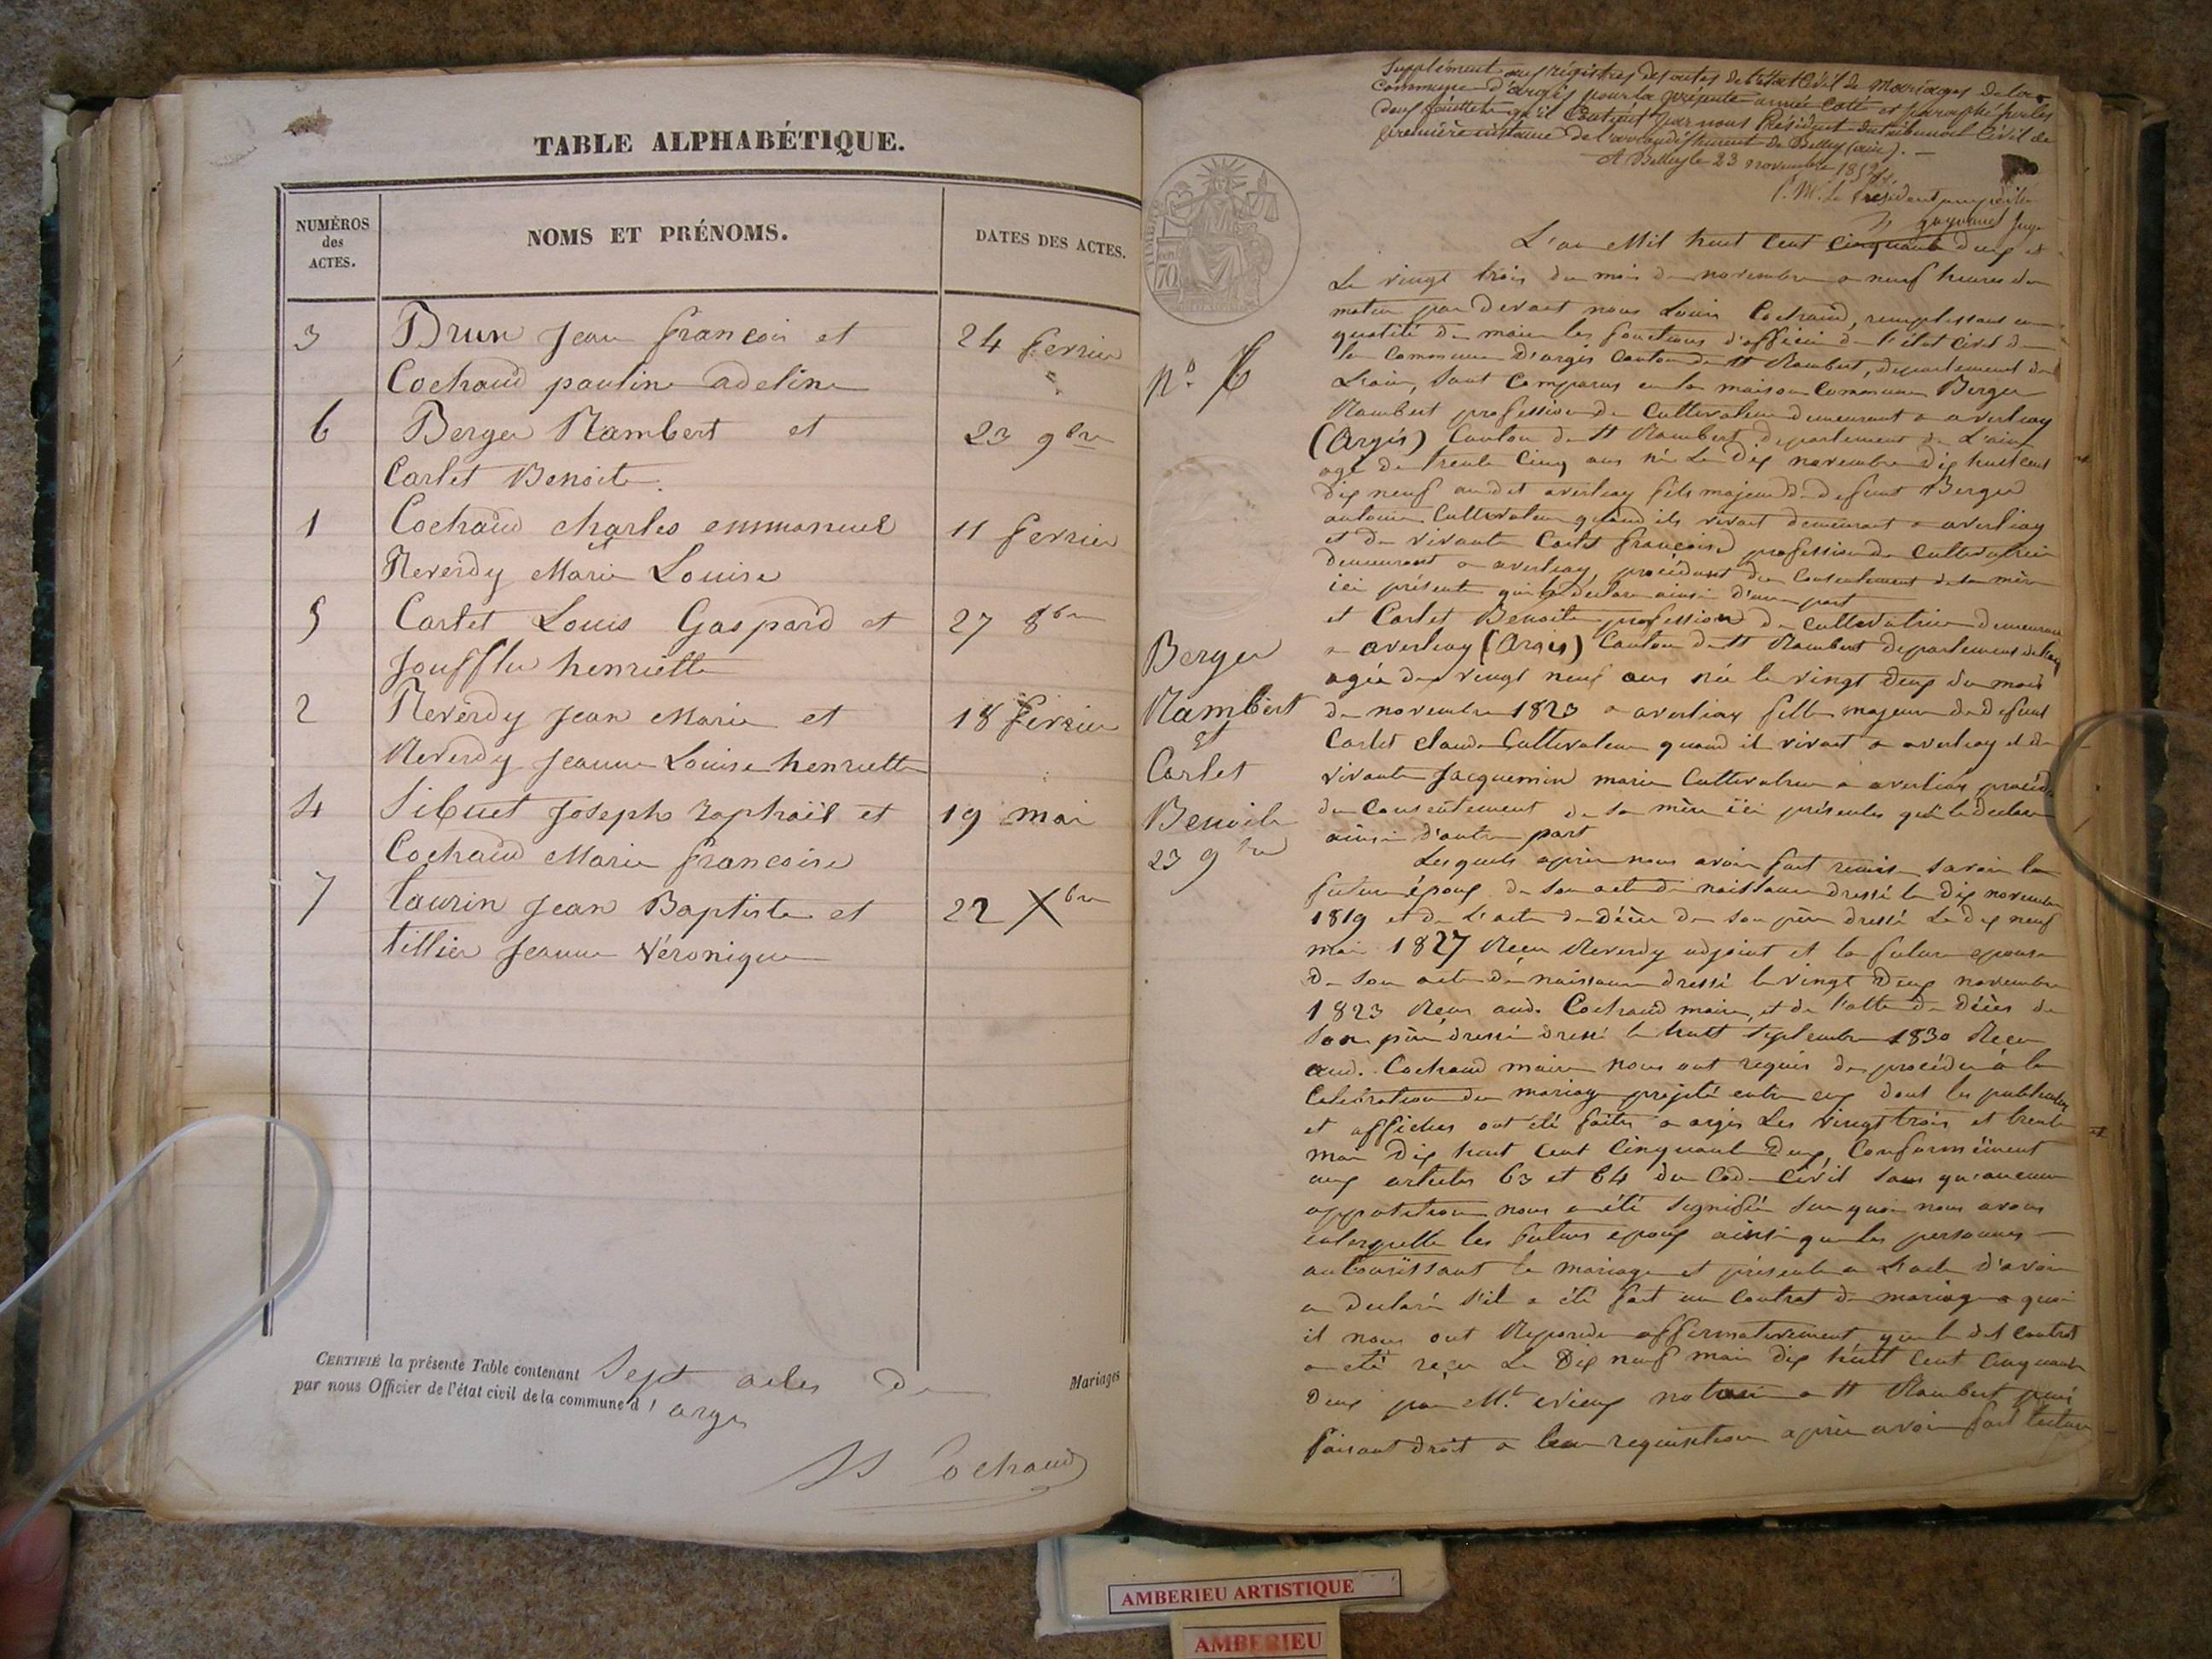 TABLE ALPHABÉTIQUE.
NUMÉROS
des
ACTES.
NOMS ET PRÉNOMS.
DATES DES ACTES.
3 Brun Jean françois et 24 fevrier
Cochaud pauline adeline
6 Berger Rambert et 23 9bre
Carlet Benoite
1 Cochaud charles emmanuel 11 fevrier
& Reverdy Marie Louise
5 Carlet Louis Gaspard et 27 8bre
Joufflu henriette
2 Reverdy Jean Marie et 18 fevrier
Reverdy Jeanne Louise henriette
4 Sibuet Joseph raphaël et 19 mai
Cochaud Marie francoise
7 taurin Jean Baptiste et 22 Xbre
tillier Jeanne Véronique
CERTIFIÉ la présente Table contenant Sept actes de Mariages
par nous Officier de l'état civil de la commune d'argis
Cochaud
Supplément aux régistres des actes de l'état Civil de Mariages de la
Commune d'argis pour la présente année Coté et paraphé sur les
deux feuillets qu'il Contient par nous Président du tribunal Civil de
première instance de l'arrondissement de Belley (ain). —
A Belley le 23 novembre 1852
P. M. le Président empêché
Juge
TIMBRE
70
L'an Mil huit Cent Cinquante deux et
Le vingt trois du mois de novembre a neuf heures du
matin par devant nous Louis Cochaud, remplissant en
qualité de maire les fonctions d'officier de l'état civil de
la Commune D'argis Canton de St Rambert, departement de
L'ain, Sont Comparus en la maison Commune Berger
Rambert profession de Cultivateur demeurant a averliay
(Argis) Canton de St Rambert departement de L'ain
agé de trente Cinq ans né Le dix novembre dix huit cent
dix neuf au dit averliay fils majeur de defunt Berger
antoine Cultivateur quand ils vivait demeurant a averliay
et de vivante Carlet françoise profession de Cultivatrice
demeurant a averliay, procédant du Consentement de sa mère
ici présente qui le déclare ainsi d'une part
et Carlet Benoite profession de cultivatrice demeurant
a averliay (Argis) Canton de St Rambert departement de l'ain
agée de vingt neuf ans née le vingt deux du mois
de novembre 1823 a averliay fille majeure de defunt
Carlet claude Cultivateur quand il vivait a averliay et de
vivante Jacquemin marie Cultivatrice a averliay procéd
du Consentement de sa mère ici présente qui le déclare
ainsi d'autre part
Lesquels après nous avoir fait remise savoir le
futur époux de son acte de naissance dressé le dix novembre
1819 et de L'acte de Décès de son père dressé Le dix neuf
mai 1827 Reçu Reverdy adjoint et la future epouse
de son acte de naissance dressé le vingt deux novembre
1823 Reçu aud. Cochaud maire, et de l'acte de Décès de
Son père dressé dressé le huit Septembre 1830 Reçu
aud. Cochaud maire nous ont requis de procéder à la
Celebration du mariage projeté entre eux dont les publications
et affiches ont été faites a argis Les vingt trois et trente
mai Dix huit Cent Cinquante Deux, Conformément
aux articles 63 et 64 du Code Civil Sans qu'aucune
opposition nous a été Signifiée Sur quoi nous avons
interpellé les futurs epoux ainsi que les personnes
autorissant le mariage et présente a L'acte d'avoir
a declaré S'il a été fait un Contrat de mariage a quoi
il nous ont Repondu affirmativement, que le dit Contrat
a été reçu Le Dix neuf mai dix huit Cent Cinquante
Deux par Mt. notaire a St Rambert puis
faisant droit a leur requisition après avoir fait lecture
No. 6
Berger
Rambert
&
Carlet
Benoite
23 9bre
AMBERIEU ARTISTIQUE
AMBERIEU